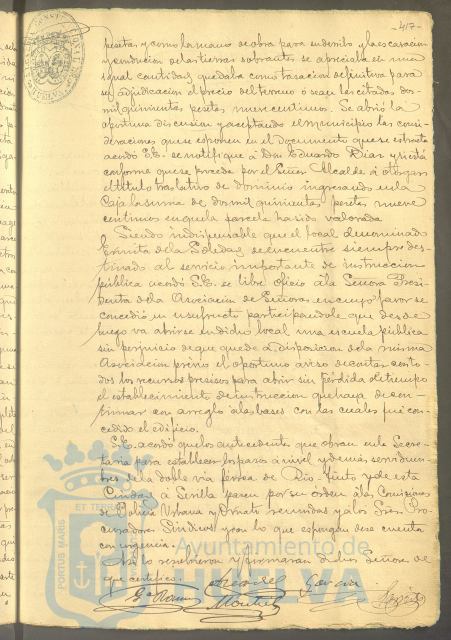 -417-
pesetas y como la mano de obra para su derribo y la escavacion
y conducion de las tierras sobrantes se apreciaba en una
igual cantidad, quedaba como tasacion definitiva para
su adjudicacion el precio del terreno ó sean las citadas dos
mil quinientas pesetas nueve centimos. Se abrió la
oportuna discusion y aceptando el municipio las consi-
deraciones que se esponen en el documento que se estracta
acordó S.E. se notifique á Don Eduardo Diaz y si está
conforme que se proceda por el Señor Alcalde á otorgar
el titulo traslativo de dominio ingresando en la
Caja la suma de dos mil quinientas pesetas nueve
centimos en que la parcela ha sido valorada.
Siendo indispensable que el local denominado
Ermita de la Soledad se encuentre siempre des-
tinado al servicio importante de instruccion
pública acordó S.E. se libre oficio á la Señora Presi-
denta de la Asociacion de Señoras en cuyo favor se
concedió en usufructo participandole que desde
luego va abrirse en dicho local una escuela pública
sin perjuicio de que quede á disposicion de la misma
Asociacion prévio el oportuno aviso de contar con to-
dos los recursos precisos para abrir sin pérdida de tiempo
el establecimiento de instruccion que haya de con-
tinuar con arreglo á las bases con las cuales fué con-
cedido el edificio.
S.E. acordó que los antecedentes que obran en la Secre-
taria para establecer los pasos á nivel y demás servidum-
bres de la doble via férrea de Rio-Tinto y de esta
Ciudad á Sevilla pasen por su orden á las Comisiones
de Policia Urbana y Ornato reunidas y á los Sres. Pro-
curadores Sindicos y con lo que espongan dese cuenta
con urgencia.
Asi lo resolvieron y firmaran dichos Señores de
que certifico.
Garcia
Ayuntamiento de
HUELVA
PORTUS MARIS
ET TERRE